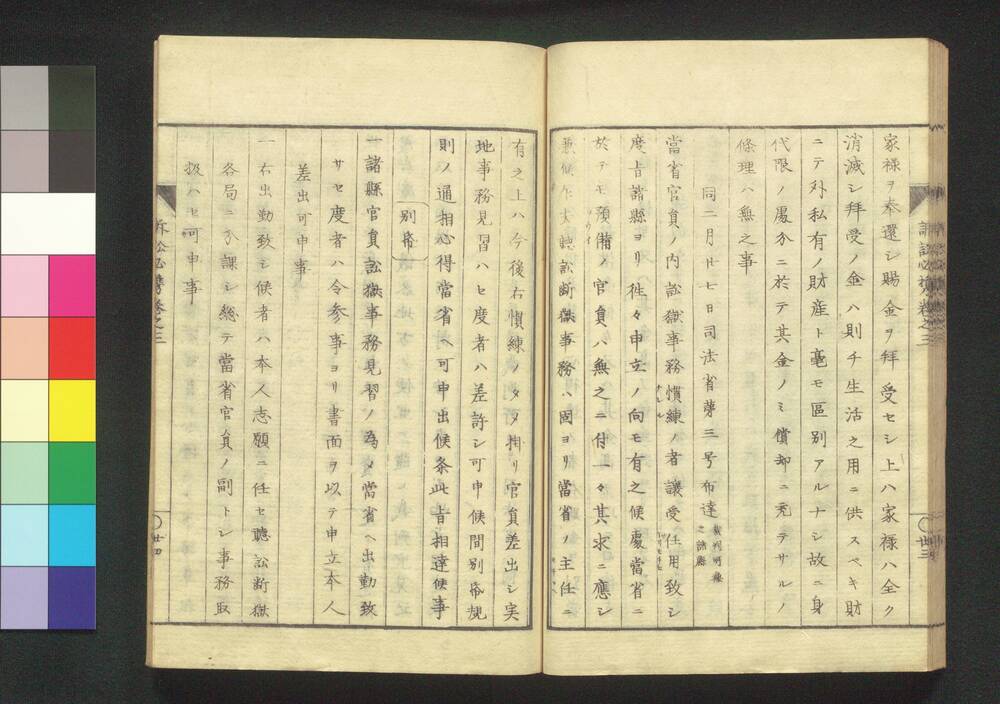 家禄ヲ奉還シ賜金ヲ拜受セシ上ハ家禄ハ全ク
消滅シ拜受ノ金ハ則チ生活之用ニ供スベキ財
ニテ外私有ノ財産ト毫モ區別アルナシ故ニ身
代限ノ處分ニ於テ其金ノミ償却ニ充テサルノ
條理ハ無之事
同二月廿七日司法省第三号布達
當省官員ノ内訟獄事務慣練ノ者讓受任用致シ
度旨諸縣ヨリ徃々申立ノ向モ有之候處當省ニ
於テモ預備ノ官員ハ無之ニ付一々其求ニ應シ
兼候乍去聽訟断獄事務ハ固ヨリ當省ノ主任ニ
訴訟必携卷之三
廿三
有之上ハ今後右慣練ノタメ掛リ官員差出シ実
地事務見習ハセ度者ハ差許シ可申候間別帋規
則ノ通相心得當省ヘ可申出候条此旨相達候事
別帋
一諸縣官員訟獄事務見習ノ為メ當省ヘ出勤致
サセ度者ハ令参事ヨリ書面ヲ以テ申立本人
差出可申事
一右出勤致シ候者ハ本人志願ニ任セ聽訟断獄
各局ニ分課シ總テ當省官員ノ副トシ事務取
扱ハセ可申事
訴訟必携卷之三
廿四